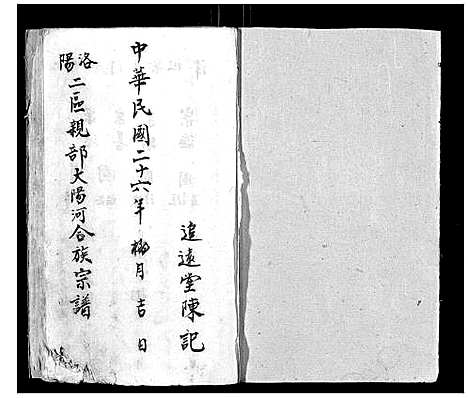 追遠堂陳記
中華民國二十六年 柳月 吉日
洛陽二區親部大陽河合族宗譜